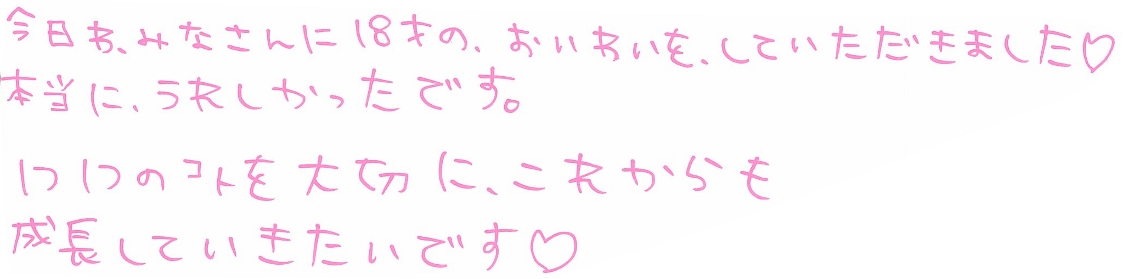 今日わ、みなさんに18才の、おいわいを、していただきました♡
本当に、うれしかったです。
1つ1つのコトを大切に、これからも
成長していきたいです♡